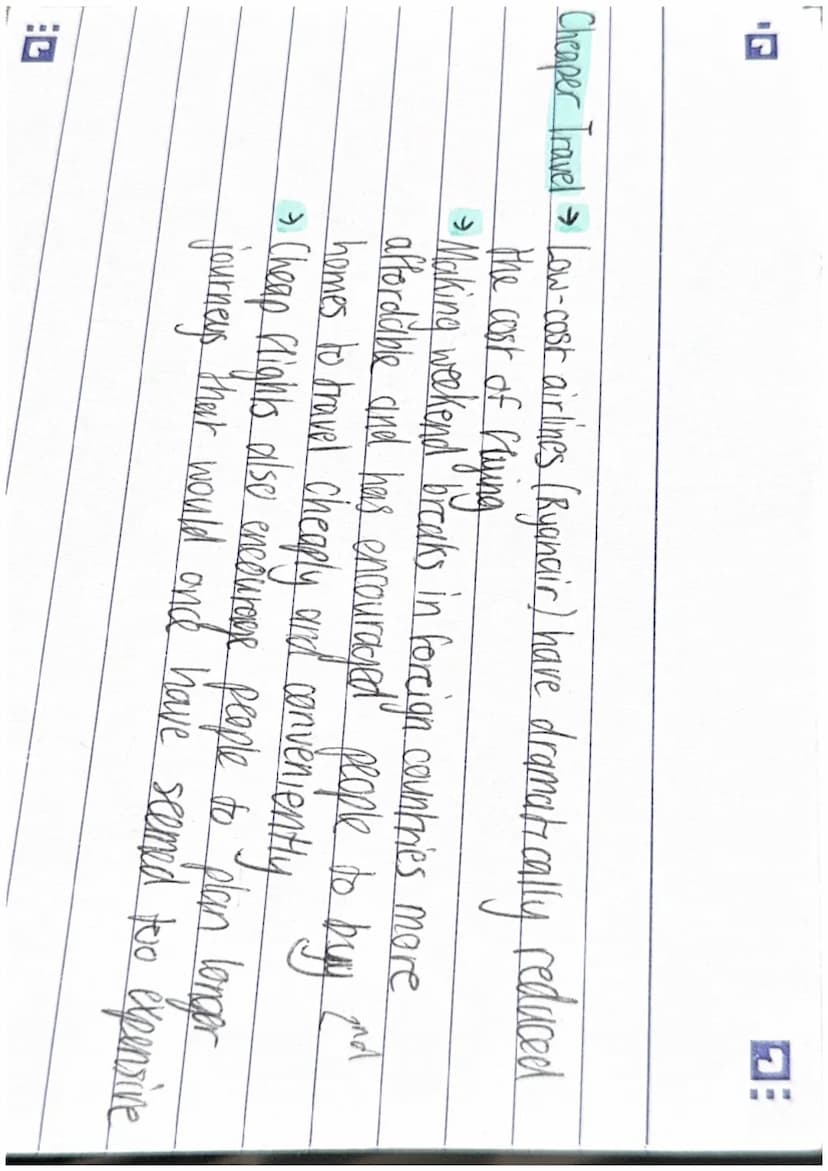 Cheaper Travel → Low-cost airlines (Ryanair) have dramatically reduced
the cost of flying
→ Making weekend breaks in foreign countries more
affordable and has encouraged people to buy 2nd
homes to travel cheaply and conveniently
→ Cheap flights also encourage people to plan longer
journeys that would once have seemed too expensive